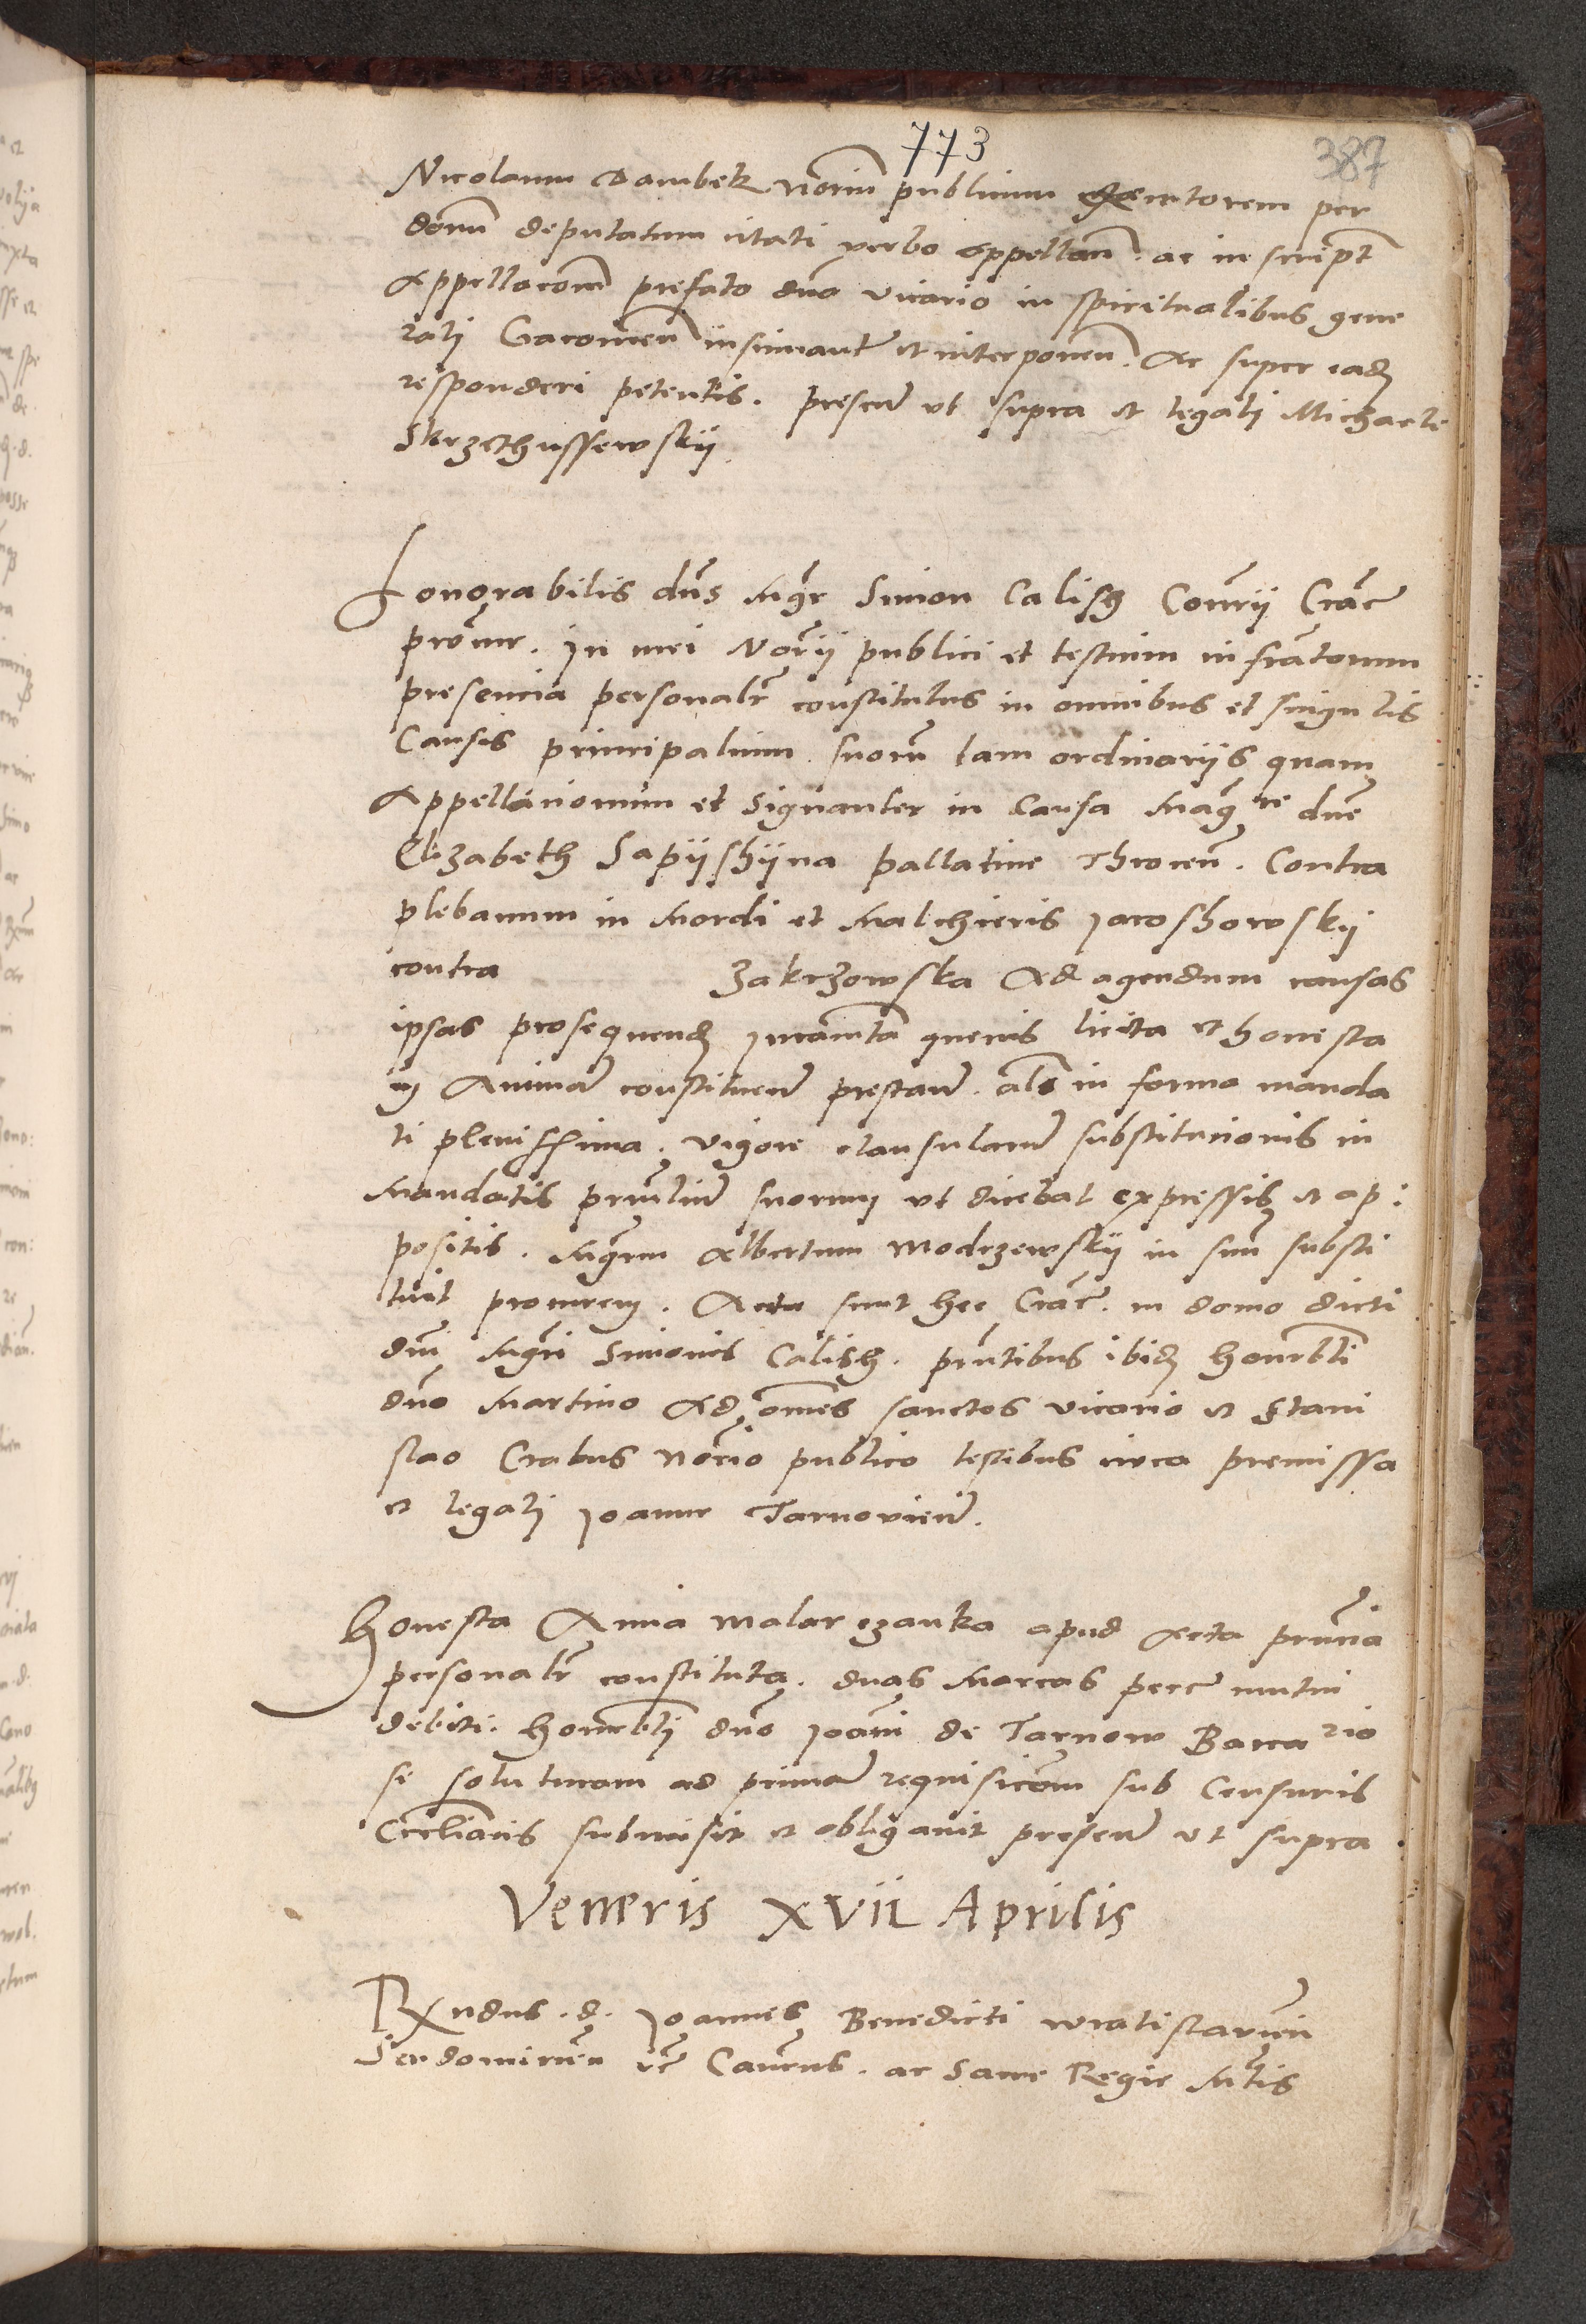 773
387
Nicolaum Dambek norium publicum executorem per
donum deputatum citati verbo appellan. ac in script
Appellacom prefato dno vicario in spiritualibus gene
rali Cracovien insinuant et interponen. Ac super ead
responderi petentis. presen ut supra et legali Michaele
Skrzethussewskÿ.
Honorabilis dns Mgr Simon Calish Consrii Crac
procur. in mei Norii publici et testium infrascriptorum
presencia personalr constitutus in omnibus et singulis
Causis principalium suorum tam ordinariis quam
Appellacionum et signanter in Causa Magce dne
Elizabeth Sapÿshÿna pallatine Throcen. Contra
plebanum in Mordi et Malchieris Jaroshowskÿ
contra Zakrzowska Ad agendum causas
ipsas prosequend Juramta quevis licita et honesta
in Animas constituen prestan. als in forma manda
ti plenissima. vigore clausularum substitucionis in
Mandatis prncialium suorum ut dicebat expressis et ap:
positis. Mgrum Albertum Modrzewskÿ in suum substi
tuit procurem. Acta sunt hec Crac. in domo dicti
dni Mgri Simonis Calish. prntibus ibid honorbli
dno Martino Ad omnes sanctos vicario et Stani
slao Crabus norio publico testibus circa premissa
et legali Joanne Tarnovien.
Honesta Anna Malarczanka apud Acta prncia
personalr constituta. duas Marcas pecc mutui
debiti. honorbli dno Joanni de Tarnow Baccario
se soluturam ad primam requisicom sub Censuris
Ecclianis submisit et obligavit presen ut supra.
Veneris XVII Aprilis
Rxndus. d. Joannes Benedicti wratislavien
Sendomirien etc Canrus. ac Sacre Regie Mtis